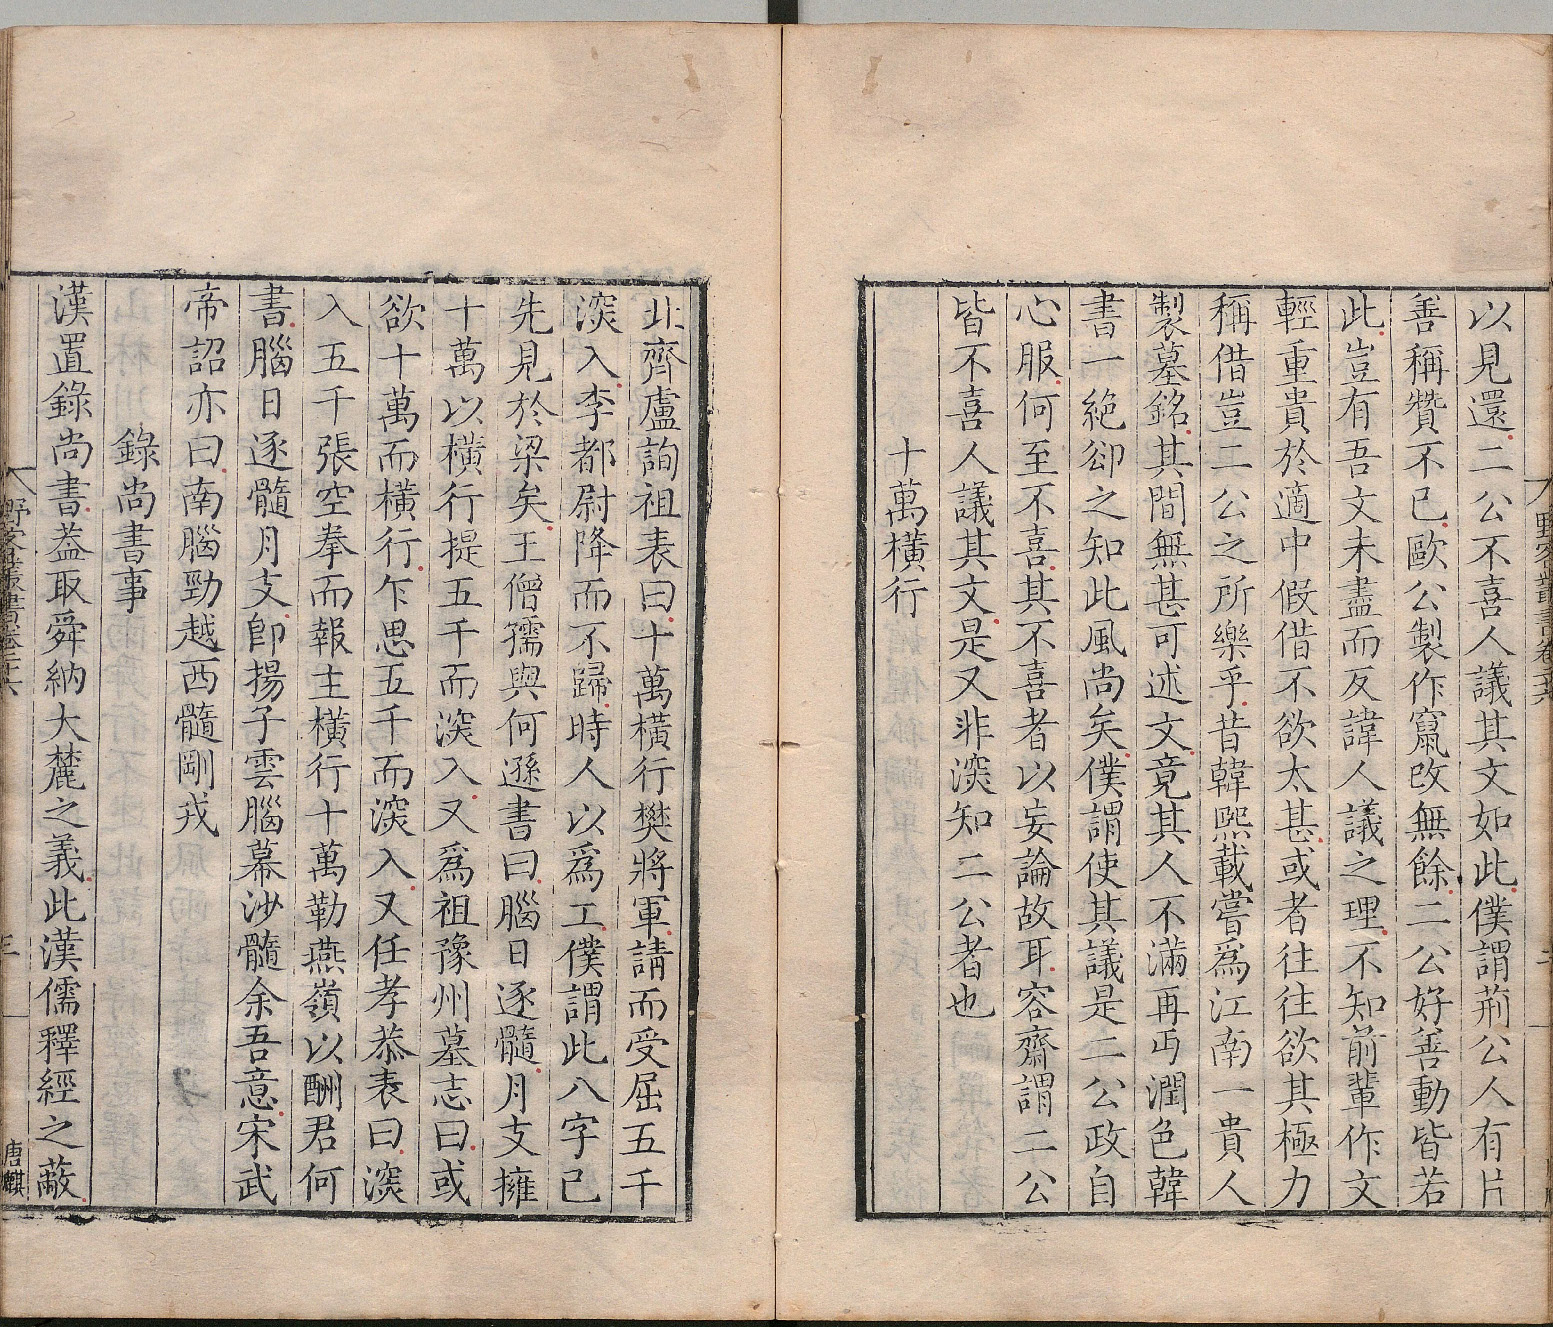 以見還二公不喜人議其文如此僕謂荊公人有片
善稱贊不已歐公製作竄改無餘二公好善動皆若
此豈有吾文未盡而反諱人議之理不知前輩作文
輕重貴於適中假借不欲太甚或者往往欲其極力
稱借豈二公之所樂乎昔韓熙載嘗為江南一貴人
製墓銘其間無甚可述文竟其人不滿再丐潤色韓
書一絶卻之知此風尚矣僕謂使其議是二公政自
心服何至不喜其不喜者以妄論故耳容齋謂二公
皆不喜人議其文是又非深知二公者也
十萬橫行
北齊盧詢祖表曰十萬橫行樊將軍請而受屈五千
深入李都尉降而不歸時人以爲工僕謂此八字已
先見於梁矣王僧孺與何遜書曰腦日逐髓月支擁
十萬以橫行提五千而深入又爲祖豫州墓志曰或
欲十萬而橫行乍思五千而深入又任孝恭表曰深
入五千張空拳而報主橫行十萬勒燕嶺以酬君何
書腦日逐髓月支卽揚子雲腦幕沙髓余吾意宋武
帝詔亦曰南腦勁越西髓剛戎
錄尚書事
漢置錄尚書蓋取舜納大麓之義此漢儒釋經之蔽
野客叢書卷二十六
三
唐麒